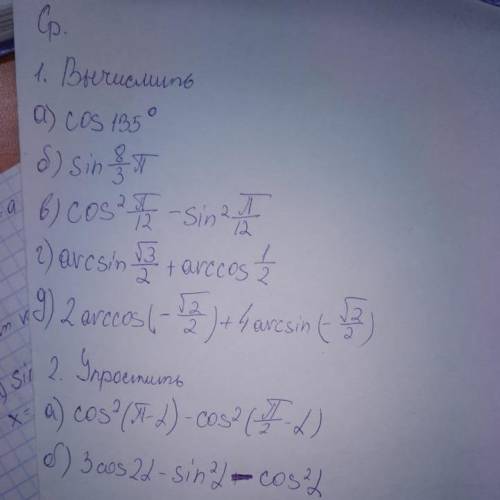 Ср.
1. Вычислить
а) cos 135°
б) sin 8/3 π
в) cos² π/12 - sin² π/12
г) arcsin √3/2 + arccos 1/2
д) 2 arccos(-√2/2) + 4 arcsin(-√2/2)
2. Упростить
а) cos²(π-α) - cos²(π/2-α)
б) 3cos2α - sin²α - cos²α